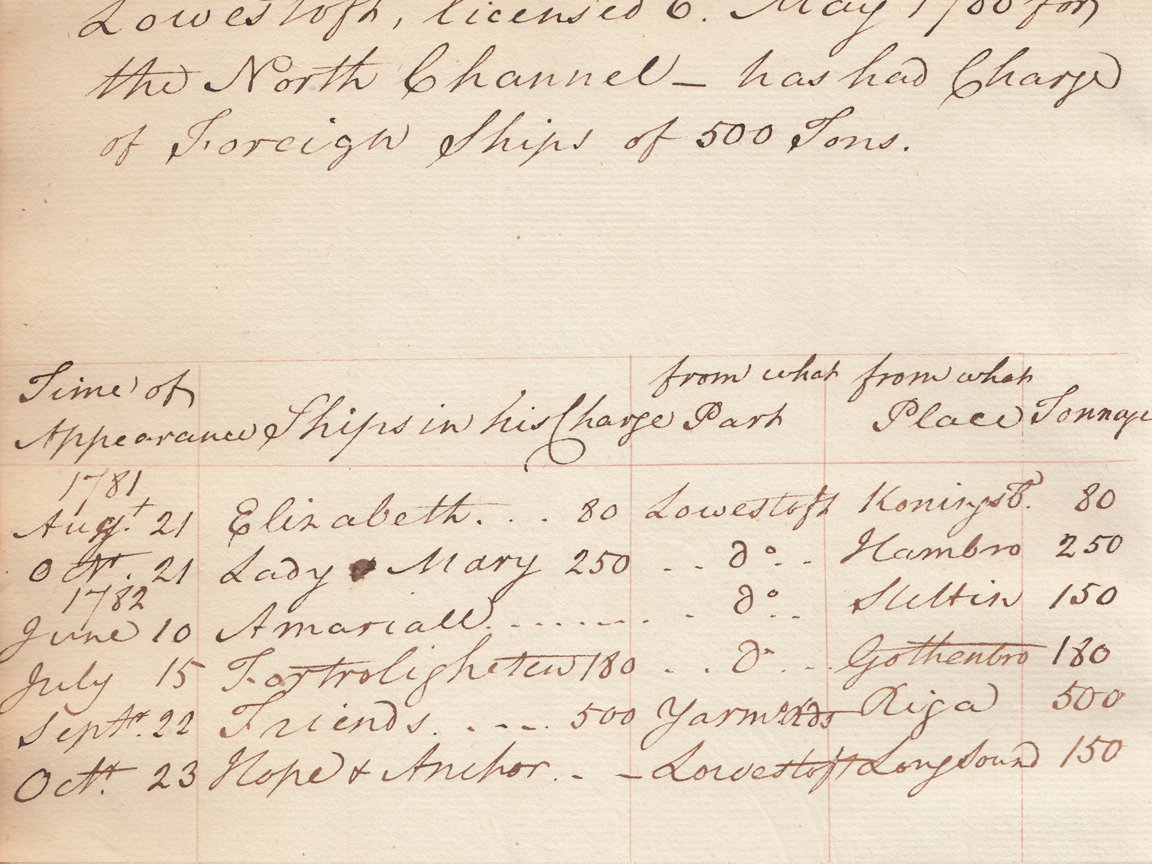 Lowestoft, licensed 6. May 1780 for
the North Channel – has had Charge
of Foreign Ships of 500 Tons.
Time of Appearance Ships in his Charge from what Part from what Place Tonnage
1781
Augt. 21 Elizabeth. . . 80 Lowestoft Koningsb. 80
Octr. 21 Lady Mary 250 . . Do. . Hambro 250
1782
June 10 Amariall . . . . . . . . Do. . . Stettin 150
July 15 Fortroligheten 180 . . Do . . Gothenbro 180
Septr. 22 Friends . . . . 500 Yarmo. Rds Riga 500
Octr. 23 Hope & Anchor . . – Lowestoft Longsound 150